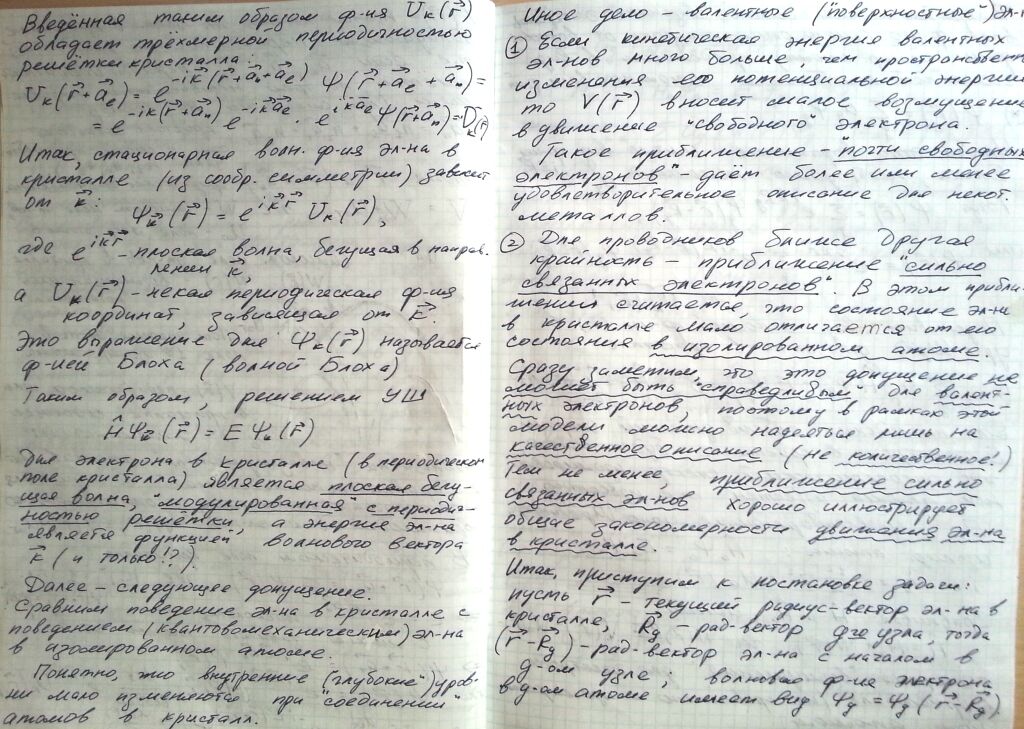 Введённая таким образом ф-ия U_k(r⃗)
обладает трёхмерной периодичностью
решётки кристалла:
U_k(r⃗+a⃗_e) = e^{-ik⃗(r⃗+a⃗_n+a⃗_e)} Ψ(r⃗+a⃗_e+a⃗_n) =
= e^{-ik⃗(r⃗+a⃗_n)} e^{-ik⃗a⃗_e} · e^{ik⃗a⃗_e} Ψ(r⃗+a⃗_n) = U_k(r⃗)
Итак, стационарная волн. ф-ия эл-на в
кристалле (из сообр. симметрии) зависит
от k⃗:
Ψ_k⃗(r⃗) = e^{ik⃗r⃗} U_k(r⃗),
где e^{ik⃗r⃗} - плоская волна, бегущая в направ-
лении k⃗,
а U_k(r⃗) - некая периодическая ф-ия
координат, зависящая от k⃗.
Это выражение для Ψ_k(r⃗) называется
ф-ией Блоха (волной Блоха)
Таким образом, решением УШ
ĤΨ_k⃗(r⃗) = EΨ_k(r⃗)
для электрона в кристалле (в периодическом
поле кристалла) является плоская бегу-
щая волна, "модулированная" с периодич-
ностью решётки, а энергия эл-на
является функцией волнового вектора
k⃗ (и только!?).
Далее - следующее допущение.
Сравним поведение эл-на в кристалле с
поведением (квантовомеханическим) эл-на
в изолированном атоме.
Понятно, что внутренние ("глубокие") уров-
ни мало изменяются при "соединении"
атомов в кристалл.
Иное дело - валентные ("поверхностные") эл-
① Если кинетическая энергия валентных
эл-нов много больше, чем пространствен
изменения его потенциальной энергии
то V(r⃗) вносит малое возмущение
в движение "свободного" электрона.
Такое приближение - "почти свободных
электронов" - даёт более или менее
удовлетворительное описание для некот.
металлов.
② Для проводников ближе другая
крайность - приближение "сильно
связанных электронов". В этом прибли-
жении считается, что состояние эл-на
в кристалле мало отличается от его
состояния в изолированном атоме.
Сразу заметим, что это допущение не
может быть "справедливым" для валент-
ных электронов, поэтому в рамках этой
модели можно надеяться лишь на
качественное описание (не количественное!)
Тем не менее, приближение сильно
связанных эл-нов хорошо иллюстрирует
общие закономерности движения эл-на
в кристалле.
Итак, приступим к постановке задачи:
пусть r⃗ - текущий радиус-вектор эл-на в
кристалле, R⃗_g - рад-вектор g-го узла, тогда
(r⃗-R⃗_g) - рад-вектор эл-на с началом в
g-ом узле; волновая ф-ия электрона
в g-ом атоме имеет вид Ψ_g = Ψ_g(r⃗-R⃗_g).